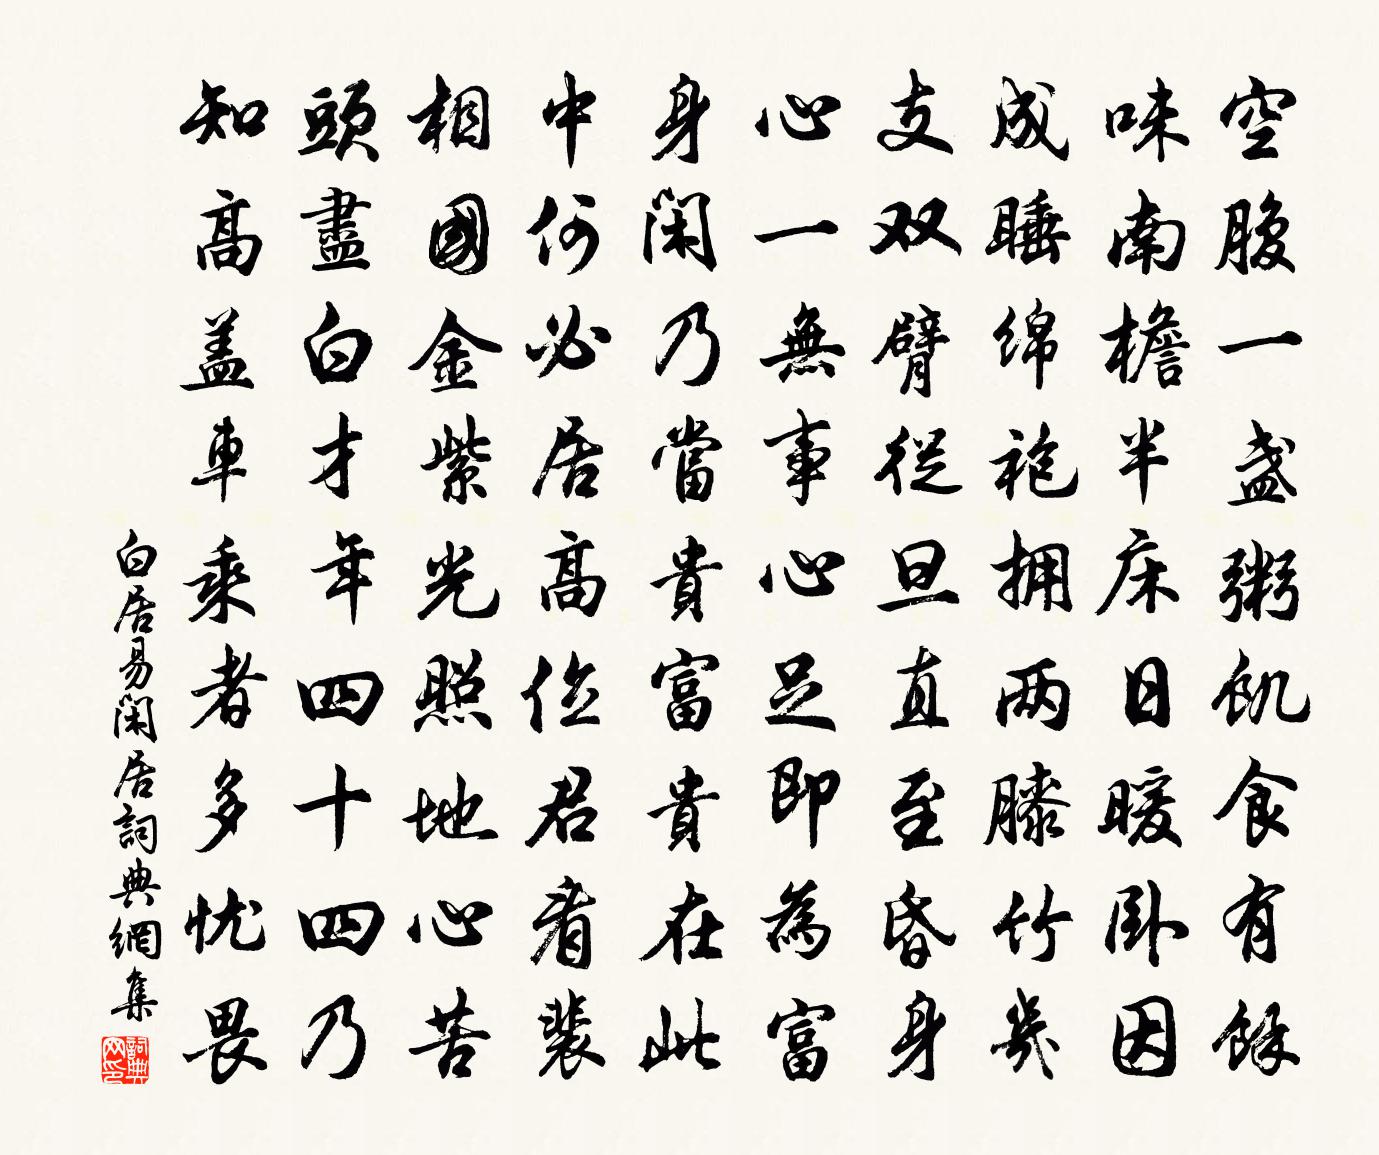 空腹一盏粥飢食有餘
味南檐半床日暖卧因
成睡绵袍拥两膝竹几
支双臂従旦直至昏身
心一無事心足即為富
身闲乃當貴富貴在此
中何必居高位君看裴
相國金紫光照地心苦
頭盡白才年四十四乃
知高盖車乘者多忧畏
白居易闲居詞典網集
詞典网印